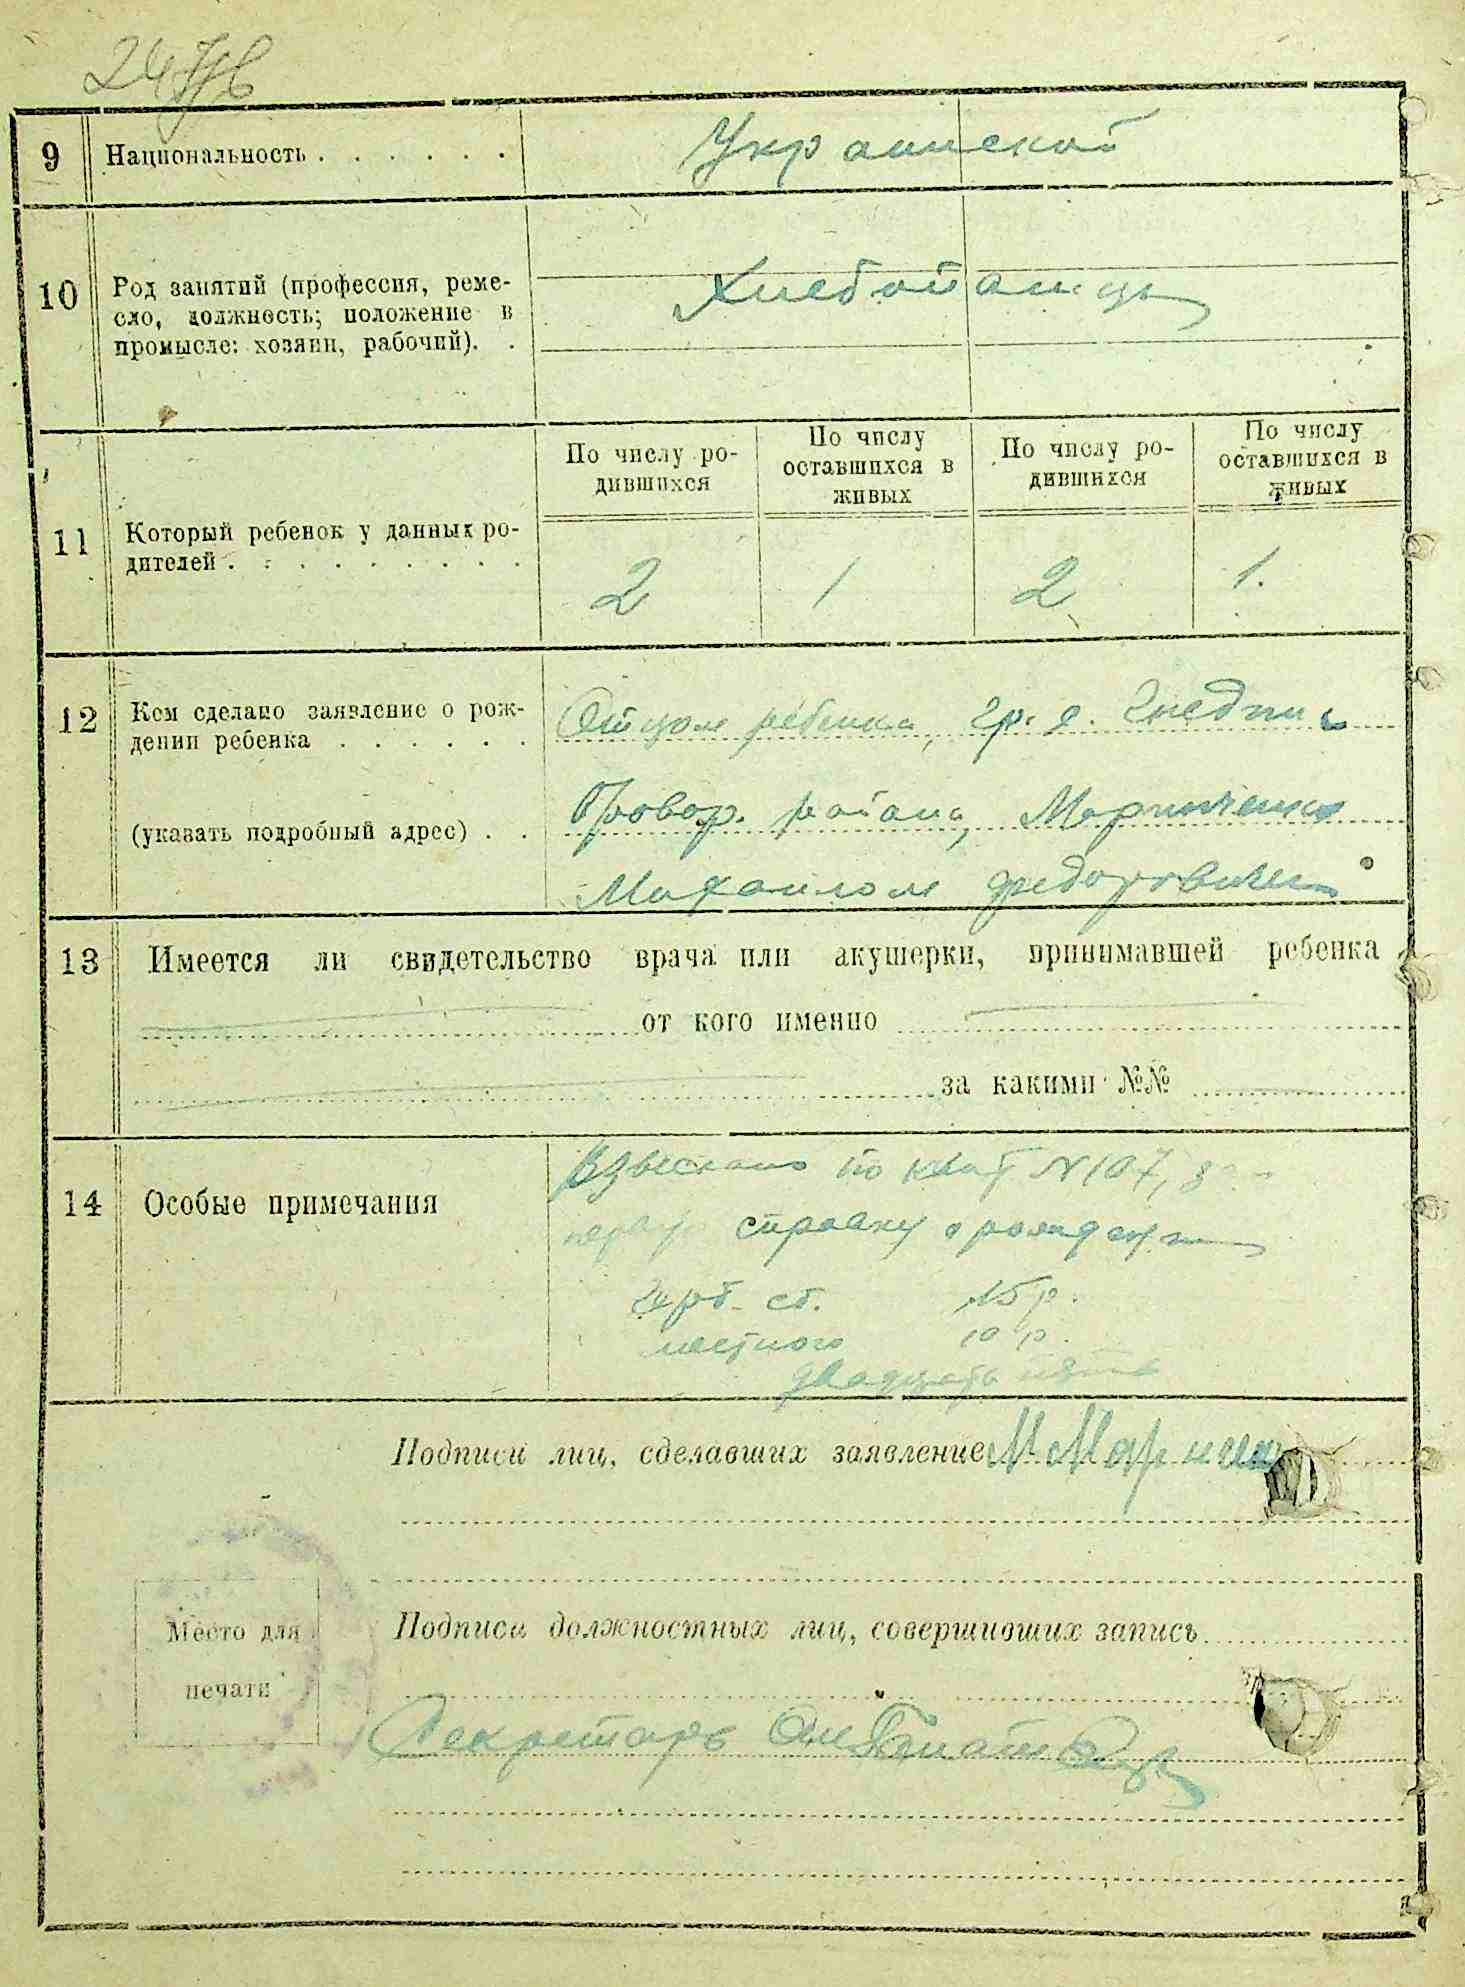 9 Национальность . . . . . . Украинской
10 Род занятий (профессия, реме-
сло, должность; положение в
промысле: хозяин, рабочий). .
Хлебопашцы
11 Который ребенок у данных ро-
дителей . . . . . . . . .
По числу ро-
дившихся
По числу
оставшихся в
живых
По числу ро-
дившихся
По числу
оставшихся в
живых
2 1 2 1.
12 Кем сделано заявление о рож-
дении ребенка . . . . . .
(указать подробный адрес) . .
Отцом ребенка, гр. с.
района,
Михаилом Федоровичем
13 Имеется ли свидетельство врача или акушерки, принимавшей ребенка
от кого именно
за какими №№
14 Особые примечания
Взыскано по квит N 107, за
первую справку о рождении
герб. сб. 15 р.
местного 10 р.
двадцать пять
Подписи лиц, сделавших заявление
Место для
печати
Подписи должностных лиц, совершивших запись
Секретарь